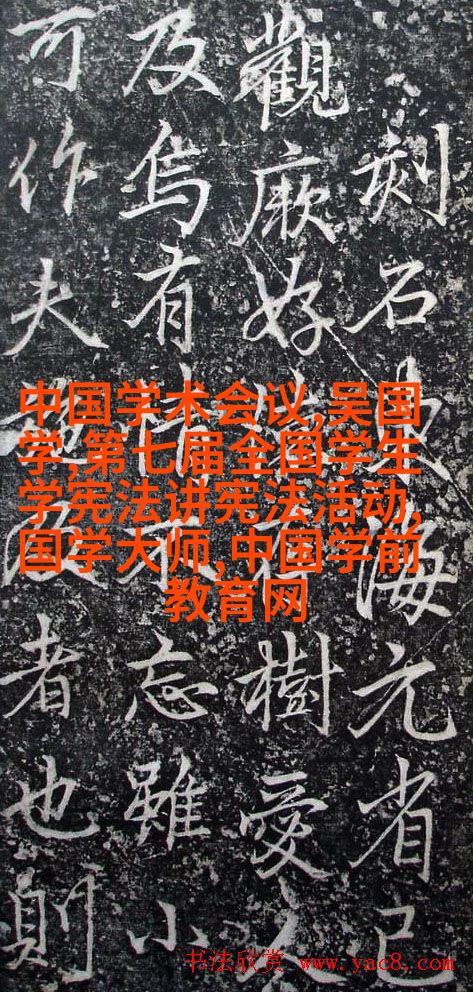 刻石海元省已
觀厥好樹愛
及烏有情不忘雖小
可作夫者也則
中国学术会议,吴国
学,第七届全国学生
学宪法讲宪法活动,
国学大师,中国学前
教育网
书法欣赏 www.yac8.com